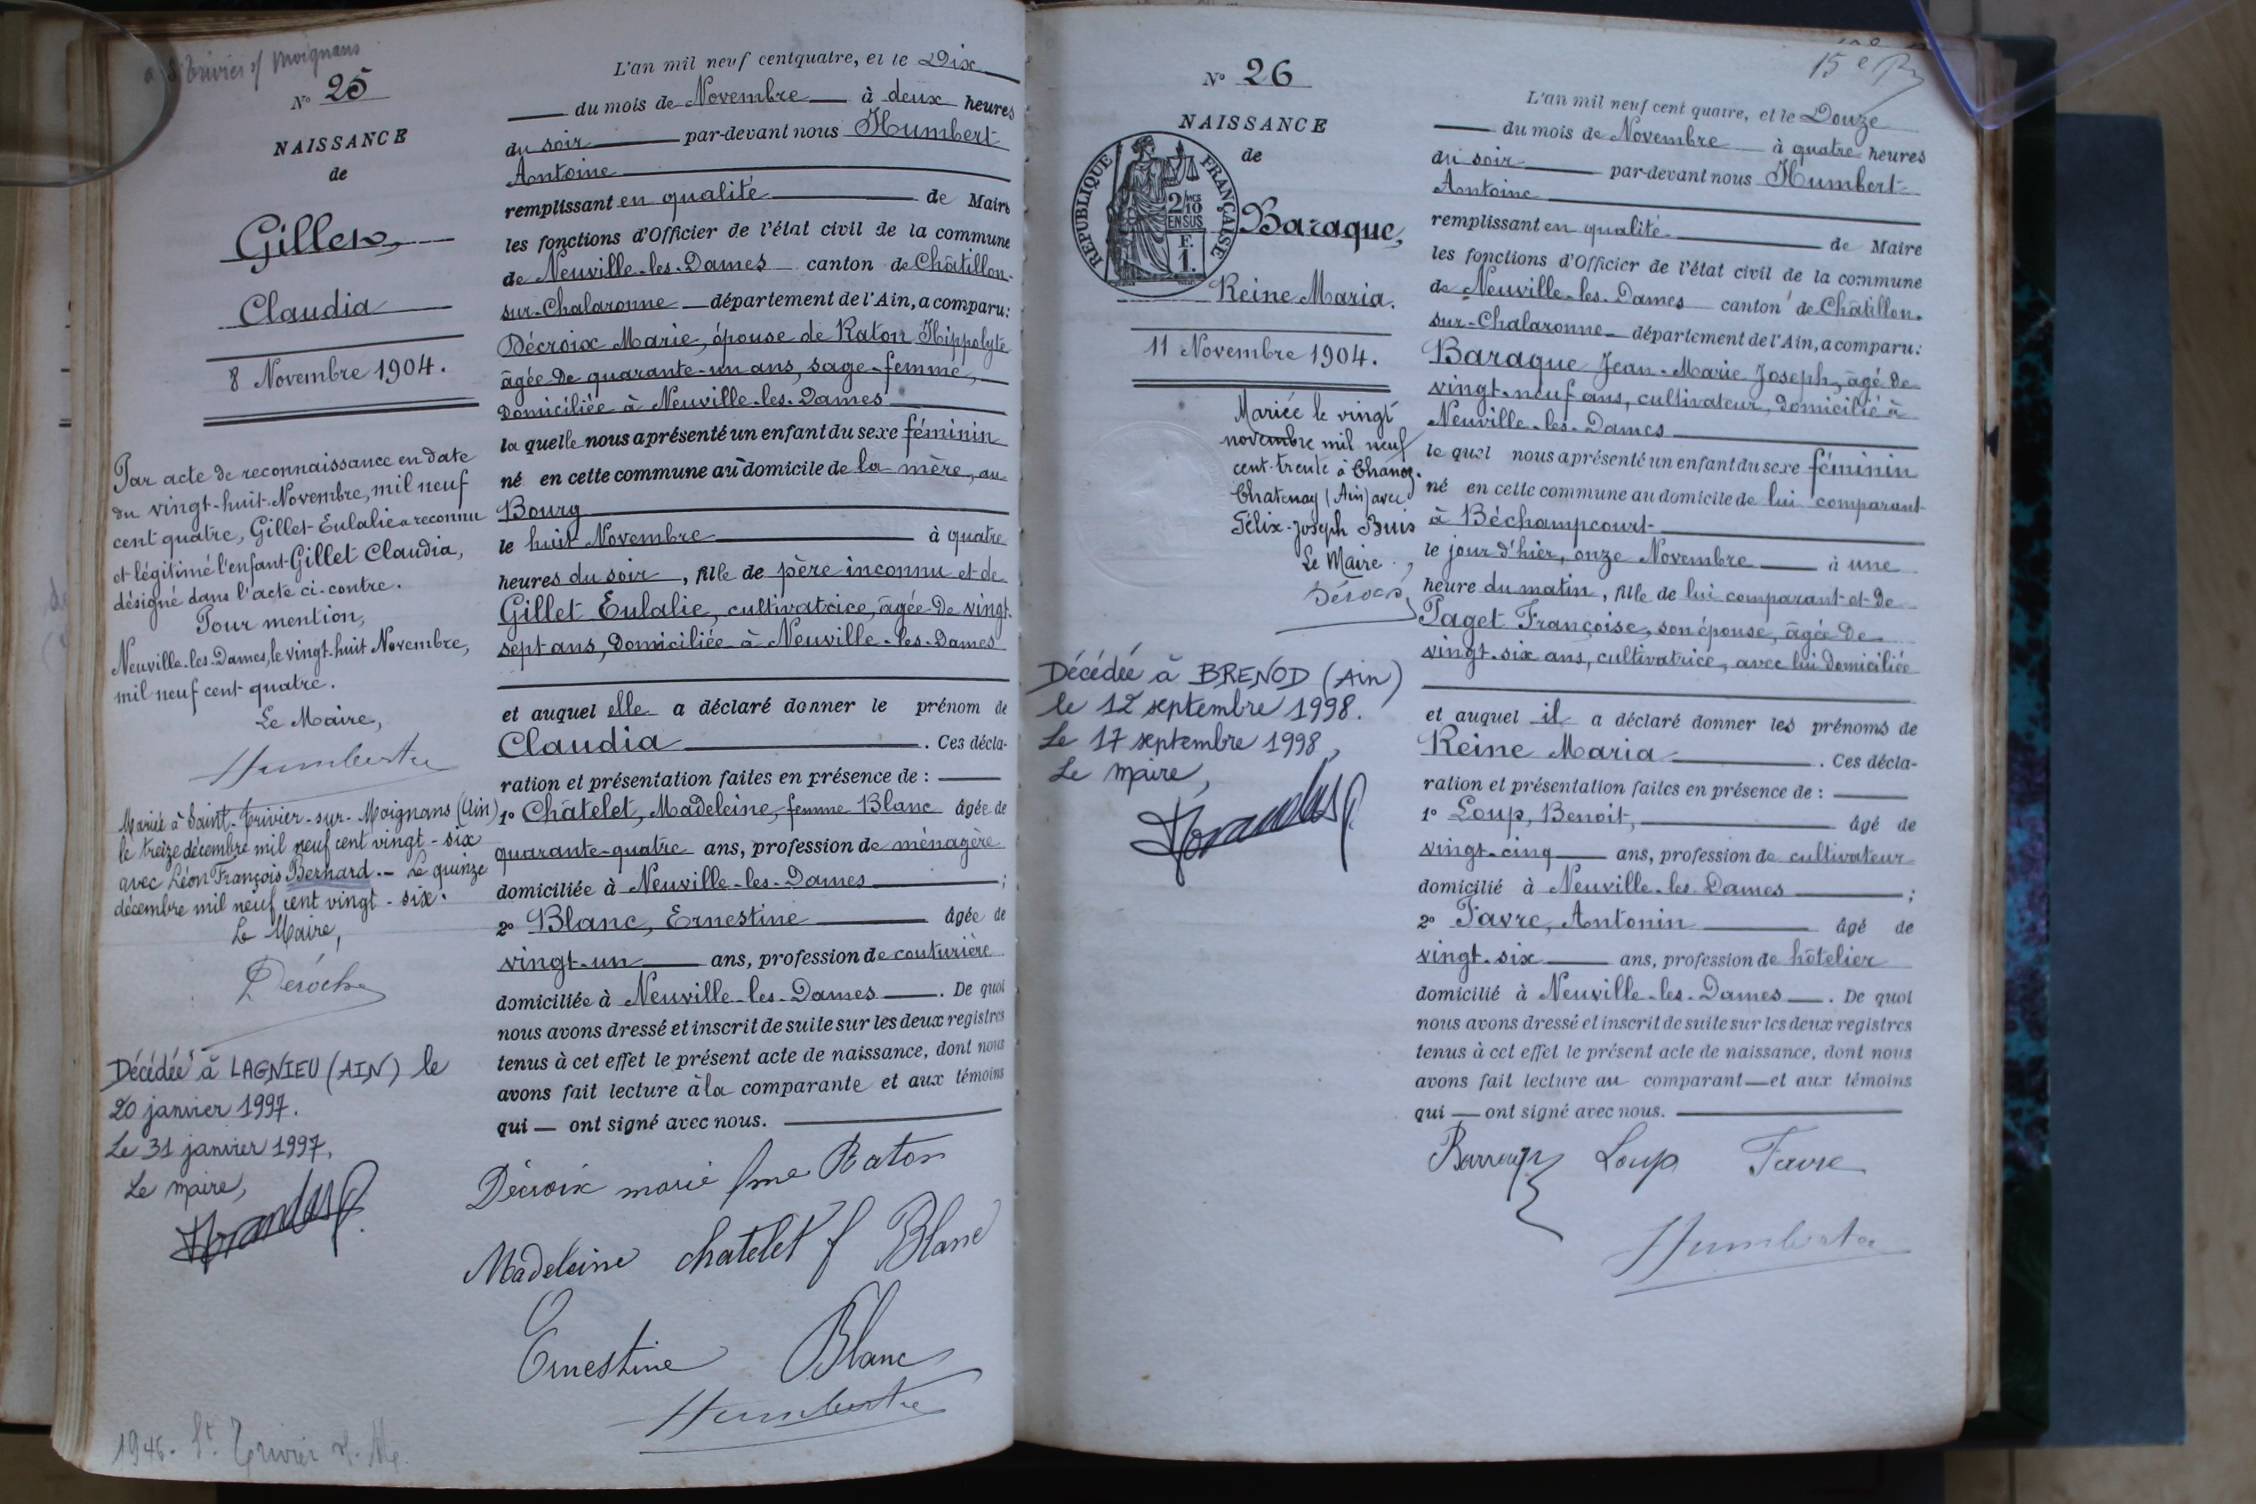 à St Trivier s/ Moignans
N° 25
NAISSANCE
de
Gillet,
Claudia
8 Novembre 1904.
Par acte de reconnaissance en date
du vingt-huit Novembre, mil neuf
cent quatre, Gillet Eulalie a reconnu
et légitimé l'enfant Gillet Claudia,
désigné dans l'acte ci-contre.
Pour mention,
Neuville-les-Dames, le vingt-huit Novembre,
mil neuf cent quatre.
Le Maire,
Humbert
Mariée à Saint-Trivier-sur-Moignans (Ain)
le treize décembre mil neuf cent vingt-six
avec Léon François Bernard.- Le quinze
décembre mil neuf cent vingt-six.
Le Maire,
Déroche
Décédée à LAGNIEU (AIN) le
20 janvier 1997.
Le 31 janvier 1997,
Le maire,
1946. St Trivier s. Mg.
L'an mil neuf cent quatre, et le Dix
du mois de Novembre à deux heures
du soir par-devant nous Humbert
Antoine
remplissant en qualité de Maire
les fonctions d'Officier de l'état civil de la commune
de Neuville-les-Dames canton de Châtillon-
sur-Chalaronne département de l'Ain, a comparu:
Décroix Marie, épouse de Raton Hippolyte
âgée de quarante-un ans, sage-femme,
domiciliée à Neuville-les-Dames
la quelle nous a présenté un enfant du sexe féminin
né en cette commune au domicile de la mère, au
Bourg
le huit Novembre à quatre
heures du soir, fille de père inconnu et de
Gillet Eulalie, cultivatrice, âgée de vingt-
sept ans, domiciliée à Neuville-les-Dames
et auquel elle a déclaré donner le prénom de
Claudia. Ces décla-
ration et présentation faites en présence de :
1° Châtelet, Madeleine, femme Blanc âgée de
quarante-quatre ans, profession de ménagère
domiciliée à Neuville-les-Dames ;
2° Blanc, Ernestine âgée de
vingt-un ans, profession de couturière
domiciliée à Neuville-les-Dames. De quoi
nous avons dressé et inscrit de suite sur les deux registres
tenus à cet effet le présent acte de naissance, dont nous
avons fait lecture à la comparante et aux témoins
qui ont signé avec nous.
Décroix marie fme Raton
Madeleine chatelet f Blanc
Ernestine Blanc
Humbert
15e
N° 26
NAISSANCE
de
REPUBLIQUE FRANÇAISE
2/10
EN SUS
F.
1.
Baraque,
Reine Maria.
11 Novembre 1904.
Mariée le vingt
novembre mil neuf
cent-trente à Chanoz-
Chatenay (Ain) avec
Félix-Joseph Buis
Le Maire.
Déroche
Décédée à BRENOD (Ain)
le 12 septembre 1998.
Le 17 septembre 1998,
Le maire,
L'an mil neuf cent quatre, et le Douze
du mois de Novembre à quatre heures
du soir par-devant nous Humbert
Antoine
remplissant en qualité de Maire
les fonctions d'Officier de l'état civil de la commune
de Neuville-les-Dames canton de Châtillon-
sur-Chalaronne département de l'Ain, a comparu:
Baraque Jean-Marie Joseph, âgé de
vingt-neuf ans, cultivateur, domicilié à
Neuville-les-Dames
le quel nous a présenté un enfant du sexe féminin
né en cette commune au domicile de lui comparant
à Béchampcourt
le jour d'hier, onze Novembre à une
heure du matin, fille de lui comparant et de
Paget Françoise, son épouse, âgée de
vingt-six ans, cultivatrice, avec lui domiciliée
et auquel il a déclaré donner les prénoms de
Reine Maria. Ces décla-
ration et présentation faites en présence de :
1° Loup, Benoit, âgé de
vingt-cinq ans, profession de cultivateur
domicilié à Neuville-les-Dames ;
2° Favre, Antonin âgé de
vingt-six ans, profession de hôtelier
domicilié à Neuville-les-Dames. De quoi
nous avons dressé et inscrit de suite sur les deux registres
tenus à cet effet le présent acte de naissance, dont nous
avons fait lecture au comparant et aux témoins
qui ont signé avec nous.
Loup Favre
Humbert